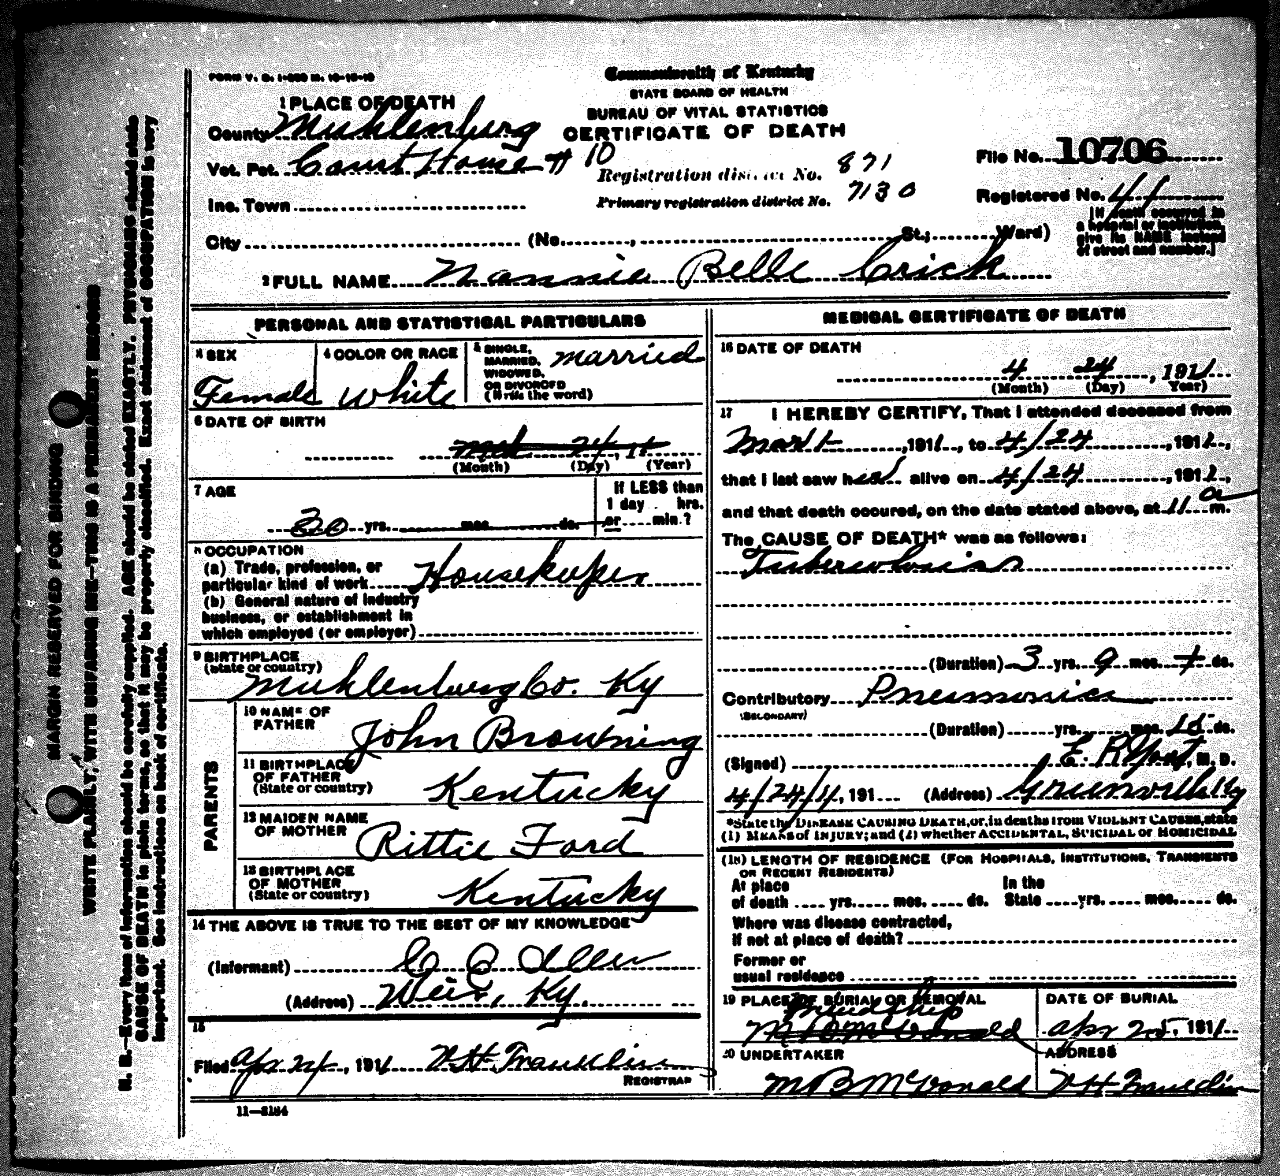 FORM V. S. 1-
Commonwealth of Kentucky
STATE BOARD OF HEALTH
BUREAU OF VITAL STATISTICS
CERTIFICATE OF DEATH
1 PLACE OF DEATH
County Muhlenburg
Vot. Pct. Court House # 10
Inc. Town
City (No. , St.; Ward)
Registration district No. 871
Primary registration district No. 7130
File No. 10706
Registered No. 41
[If death occurred in
a hospital or institution,
give its NAME instead
of street and number.]
2 FULL NAME Nannie Belle Crick
PERSONAL AND STATISTICAL PARTICULARS
3 SEX
Female
4 COLOR OR RACE
White
5 SINGLE,
MARRIED,
WIDOWED,
OR DIVORCED
(Write the word)
married
6 DATE OF BIRTH
Mch 24, 11
(Month) (Day) (Year)
7 AGE
yrs. mos. ds.
If LESS than
1 day hrs.
or min.?
8 OCCUPATION
(a) Trade, profession, or
particular kind of work Housekeeper
(b) General nature of industry
business, or establishment in
which employed (or employer)
9 BIRTHPLACE
(State or country)
Muhlenburg Co. Ky
PARENTS
10 NAME OF
FATHER
John Browning
11 BIRTHPLACE
OF FATHER
(State or country)
Kentucky
12 MAIDEN NAME
OF MOTHER
Rittie Ford
13 BIRTHPLACE
OF MOTHER
(State or country)
Kentucky
14 THE ABOVE IS TRUE TO THE BEST OF MY KNOWLEDGE
(Informant) C C Allen
(Address) Weir, Ky.
15
Filed Apr 24, 1911 W.H. Franklin
REGISTRAR
11—3184
MEDICAL CERTIFICATE OF DEATH
16 DATE OF DEATH
4 24, 1911
(Month) (Day) Year)
17 I HEREBY CERTIFY, That I attended deceased from
Mar 1, 1911, to 4/24, 1911,
that I last saw her alive on 4/24, 1911,
and that death occured, on the date stated above, at 11 a m.
The CAUSE OF DEATH* was as follows:
Tuberculosis
(Duration) 3 yrs. 9 mos. ds.
Contributory Pneumonia
(SECONDARY)
(Duration) yrs. mos. 15 ds.
(Signed) E. R. Yost, M. D.
4/24/11, 191 (Address) Greenville Ky
*State the DISEASE CAUSING DEATH, or, in deaths from VIOLENT CAUSES, state
(1) MEANS of INJURY; and (2) whether ACCIDENTAL, SUICIDAL or HOMICIDAL
(18) LENGTH OF RESIDENCE (FOR HOSPITALS, INSTITUTIONS, TRANSIENTS
OR RECENT RESIDENTS)
At place In the
of death yrs. mos. ds. State yrs. mos. ds.
Where was disease contracted,
If not at place of death?
Former or
usual residence
19 PLACE OF BURIAL OR REMOVAL
Friendship
M B McDonald
DATE OF BURIAL
Apr 25, 1911
20 UNDERTAKER
M B McDonald
ADDRESS
W H Franklin
MARGIN RESERVED FOR BINDING
WRITE PLAINLY, WITH UNFADING INK—THIS IS A PERMANENT RECORD
N. B.—Every item of information should be carefully supplied. AGE should be stated EXACTLY. PHYSICIANS should state
CAUSE OF DEATH in plain terms, so that it may be properly classified. Exact statement of OCCUPATION is very
important. See instructions on back of certificate.